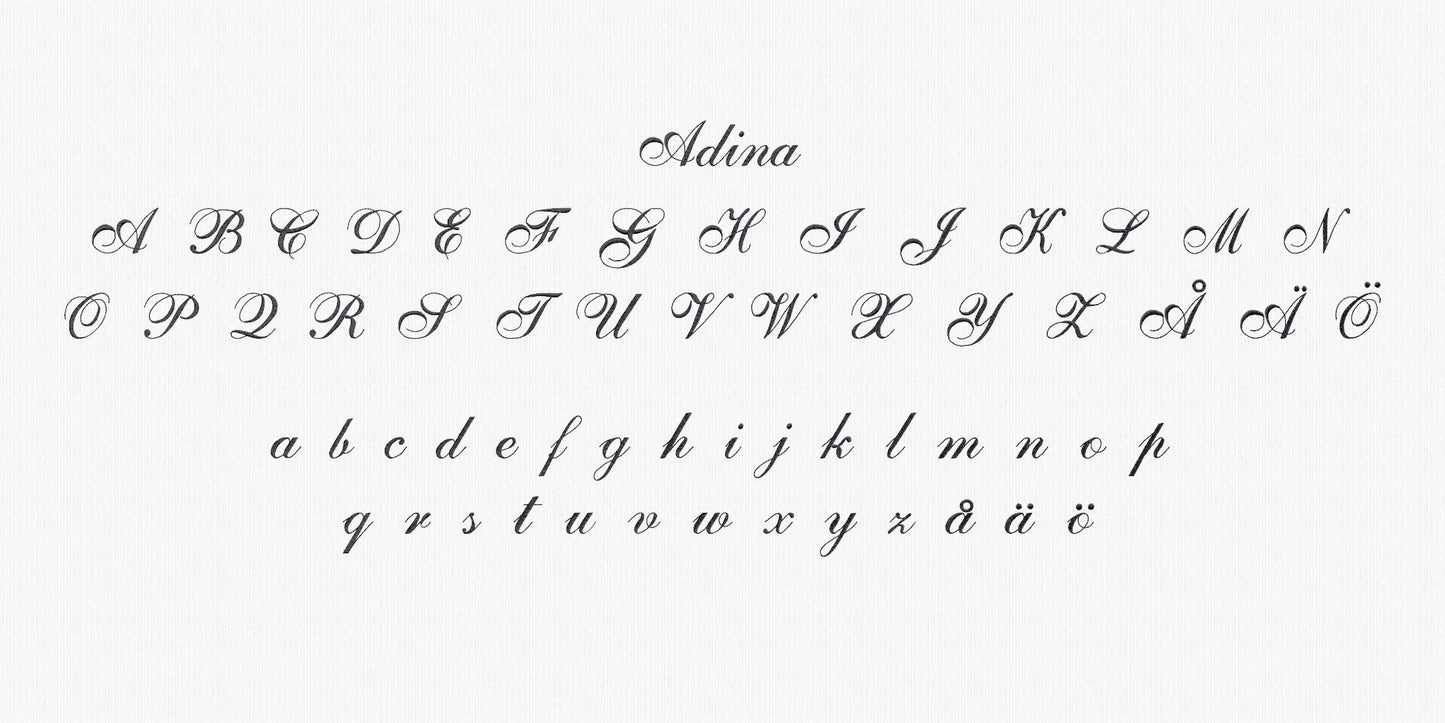 Adina
A B C D E F G H I J K L M N
O P Q R S T U V W X Y Z Å Ä Ö
a b c d e f g h i j k l m n o p
q r s t u v w x y z å ä ö